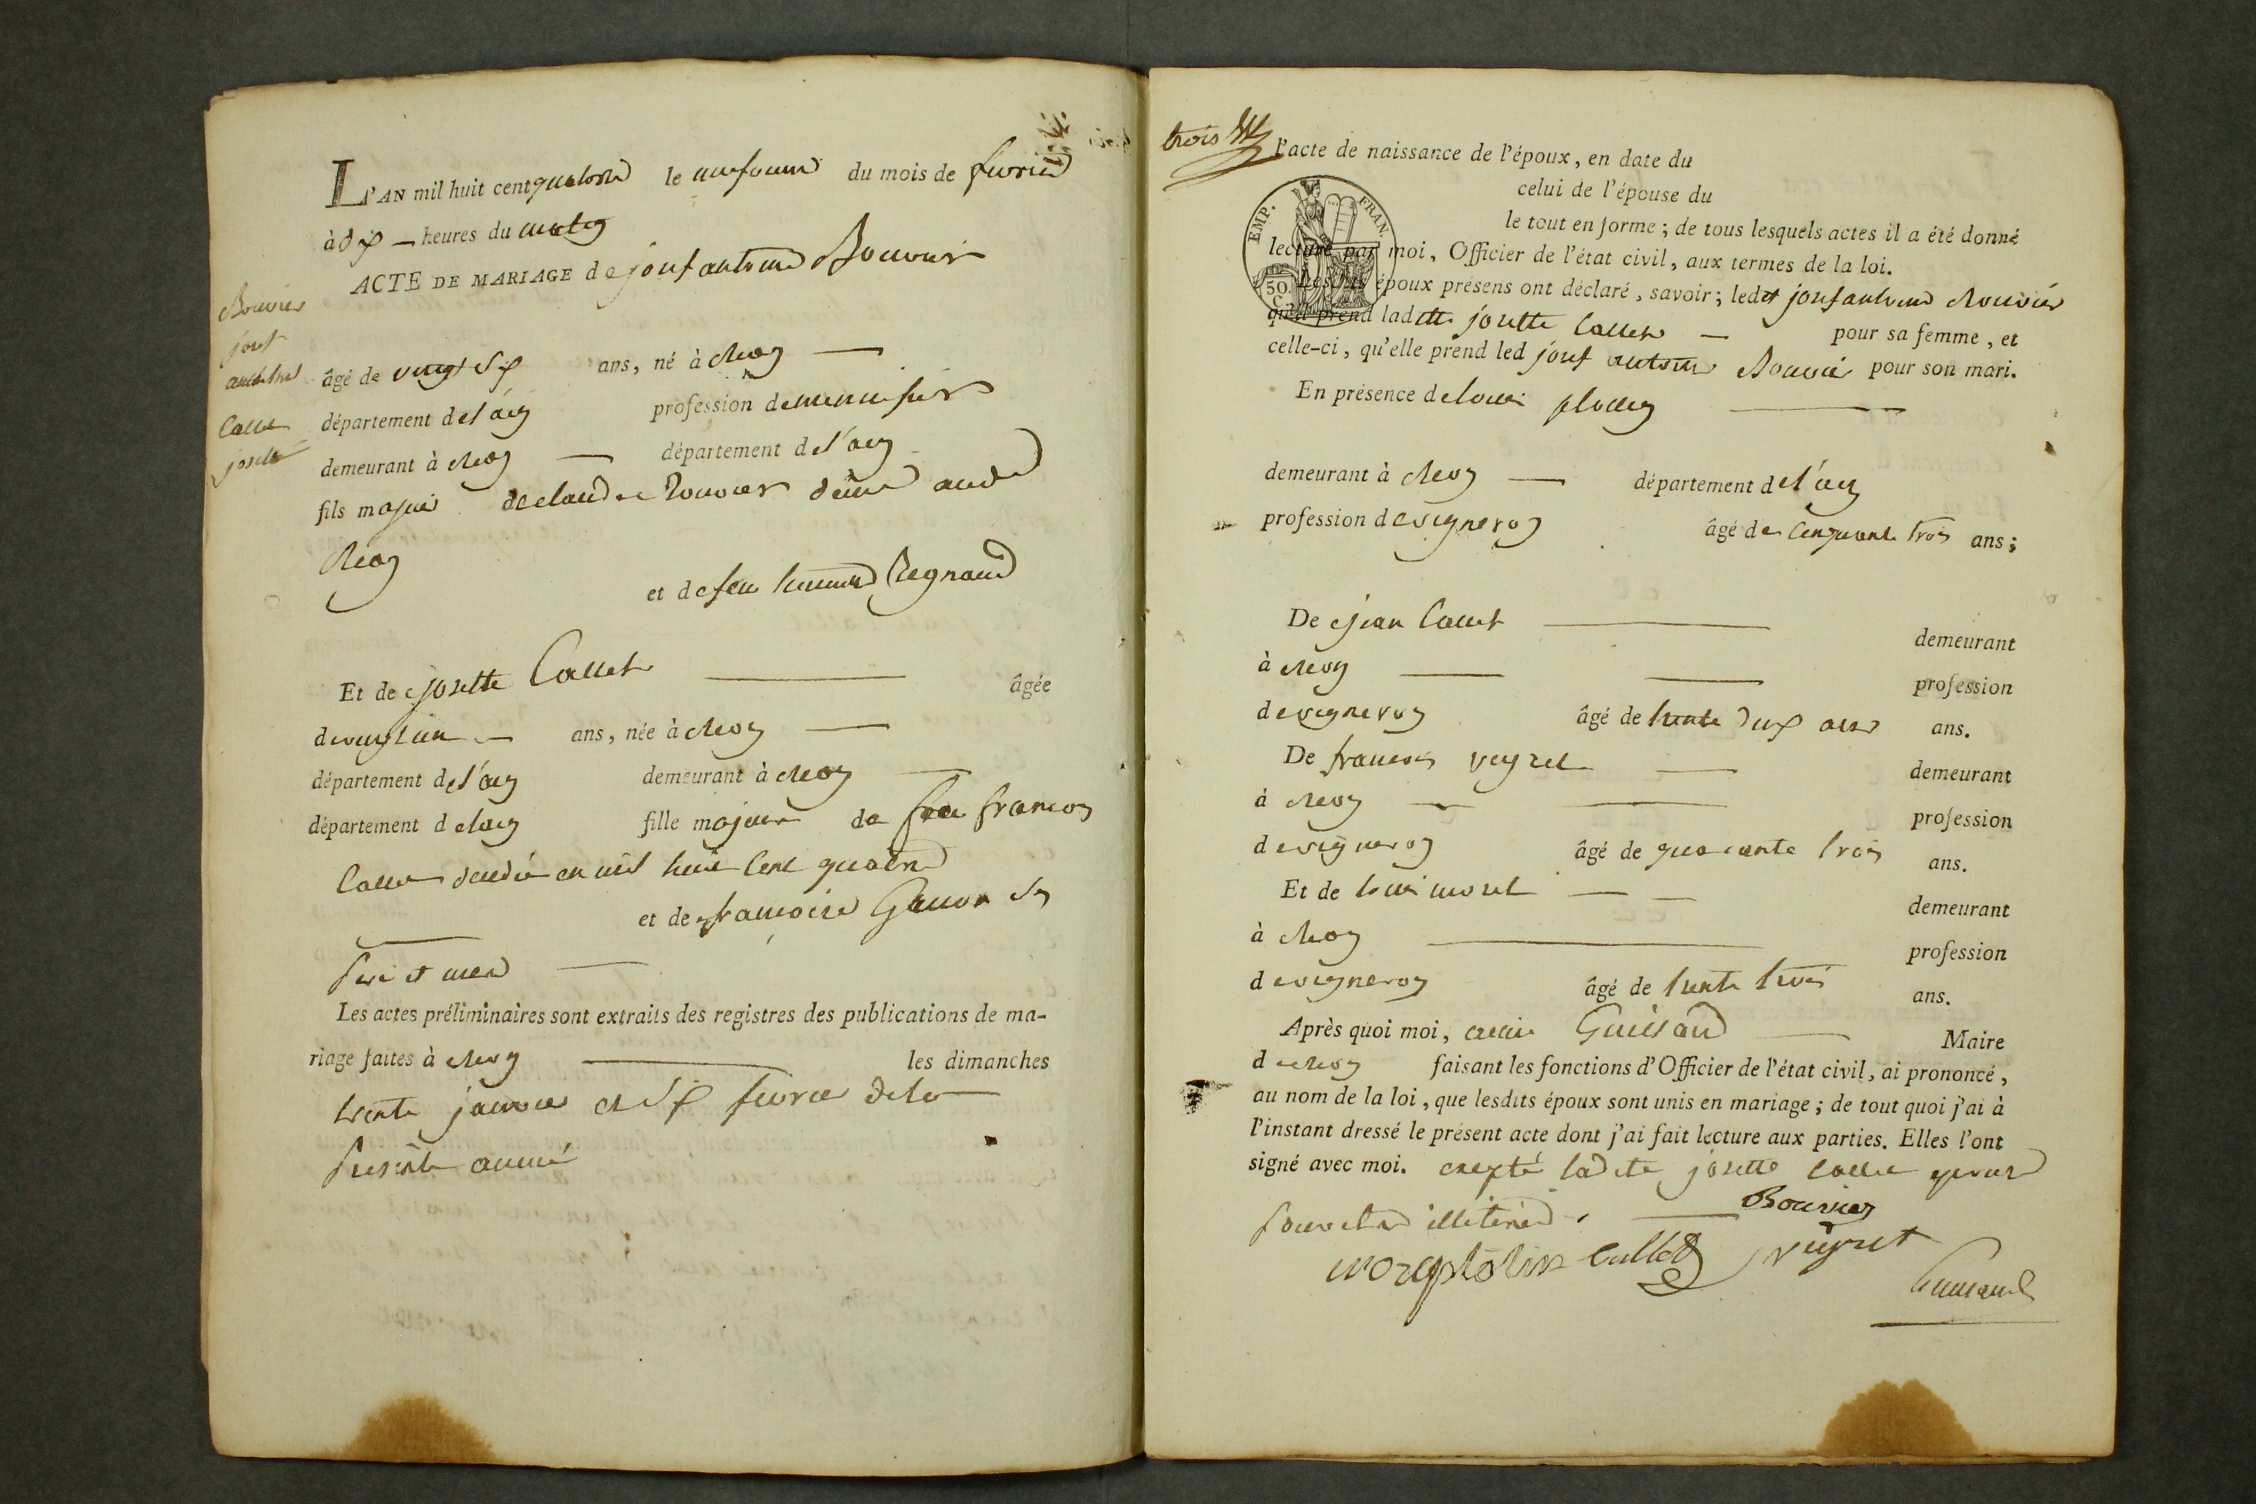 L'AN mil huit cent quatorze le neufieme du mois de fevrier
à dix — heures du matin
ACTE DE MARIAGE de josef antoine Bouvier
Bouvier
josef
antoine
Callet
josette
âgé de vingt six ans, né à cleon —
département de l'ain profession de menuisier
demeurant à cleon — département de l'ain
fils majeur de claude Bouvier
et de feu Regnaud
Et de josette Callet — âgée
de ans, née à cleon —
département de l'ain demeurant à cleon —
département de lain fille majeure de feu francois
Callet décédé en mil huit cent quatre
et de francoise
pere et mere —
Les actes préliminaires sont extraits des registres des publications de ma-
riage faites à cleon — les dimanches
trente janvier et six fevrier de la
presente année
trois
l'acte de naissance de l'époux, en date du
celui de l'épouse du
le tout en forme; de tous lesquels actes il a été donné
lecture par moi, Officier de l'état civil, aux termes de la loi.
EMP. FRAN.
50 C.
Lesdits époux présens ont déclaré, savoir; ledt josef antoine Bouvier
qu'il prend ladite josette Callet — pour sa femme, et
celle-ci, qu'elle prend led josef antoine Bouvier pour son mari.
En présence de louis —
demeurant à cleon — département de l'ain
profession de vigneron âgé de cinquante trois ans;
De jean Callet — demeurant
à cleon — — profession
de vigneron âgé de trente deux ans ans.
De francois veyret — demeurant
à cleon — — profession
de vigneron âgé de quarante trois ans.
Et de louis morel — — demeurant
à cleon — profession
de vigneron âgé de trente trois ans.
Après quoi moi, — Maire
de cleon faisant les fonctions d'Officier de l'état civil, ai prononcé,
au nom de la loi, que lesdits époux sont unis en mariage; de tout quoi j'ai à
l'instant dressé le présent acte dont j'ai fait lecture aux parties. Elles l'ont
signé avec moi. excepté ladite josette callet
pour etre —
Bouvier
callet veyret